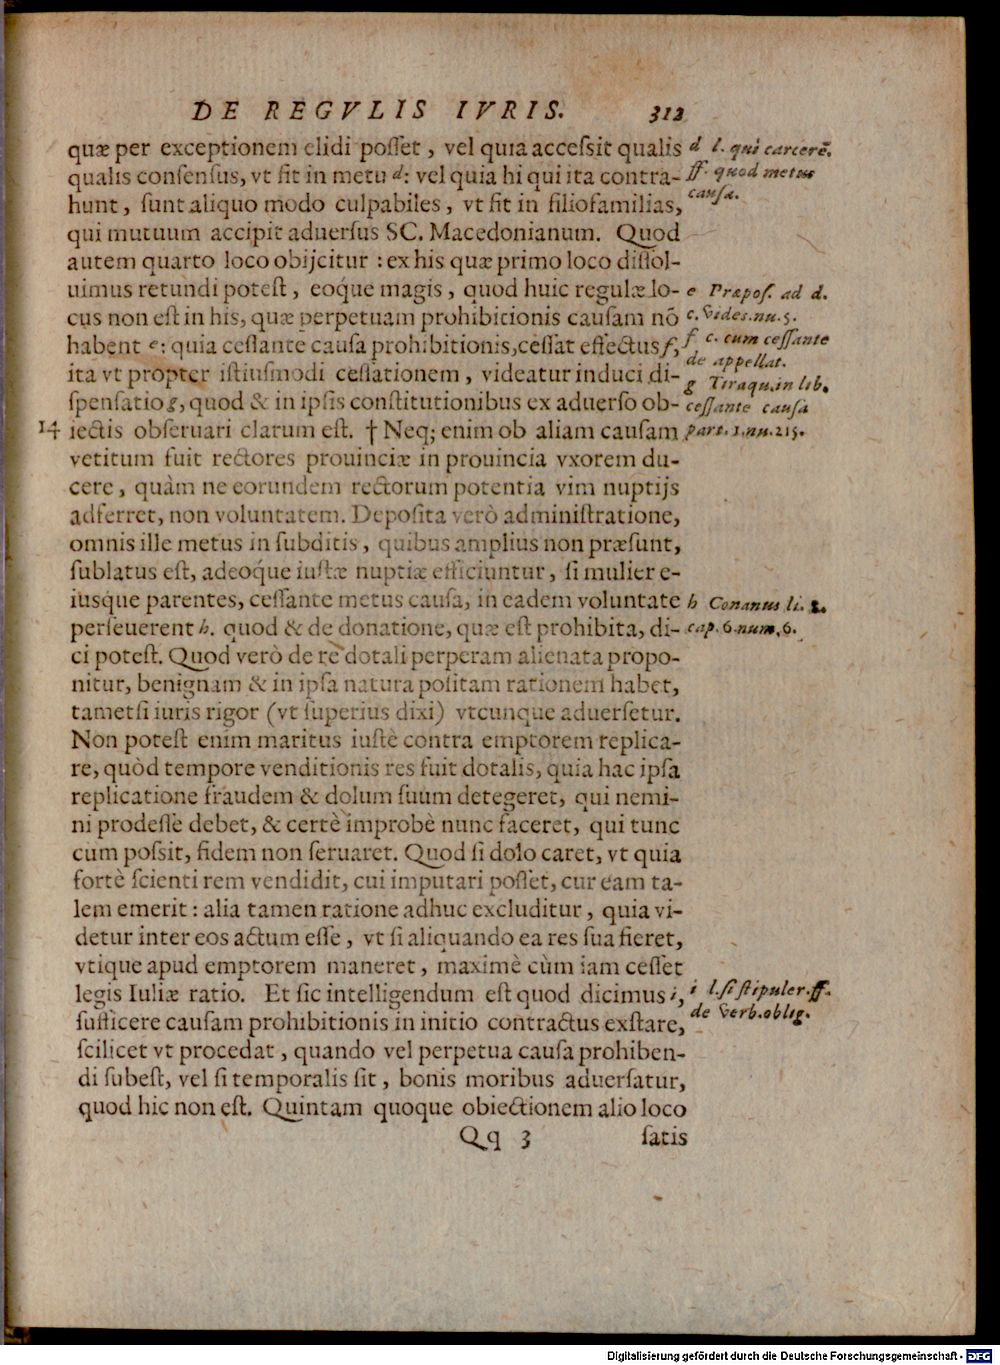 DE REGVLIS IVRIS. 312
quæ per exceptionem elidi posset, vel quia accessit qualis
qualis consensus, vt fit in metu d: vel quia hi qui ita contra-
hunt, sunt aliquo modo culpabiles, vt fit in filiofamilias,
qui mutuum accipit aduersus SC. Macedonianum. Quod
autem quarto loco obijcitur : ex his quæ primo loco dissol-
uimus retundi potest, eoque magis, quod huic regulæ lo-
cus non est in his, quæ perpetuam prohibitionis causam nō
habent e: quia cessante causa prohibitionis, cessat effectus f,
ita vt propter istiusmodi cessationem, videatur induci di-
spensatio g, quod & in ipsis constitutionibus ex aduerso ob-
14 iectis obseruari clarum est. † Neq; enim ob aliam causam
vetitum fuit rectores prouinciæ in prouincia vxorem du-
cere, quàm ne eorundem rectorum potentia vim nuptijs
adferret, non voluntatem. Deposita verò administratione,
omnis ille metus in subditis, quibus amplius non præsunt,
sublatus est, adeoque iustæ nuptiæ efficiuntur, si mulier e-
iusque parentes, cessante metus causa, in eadem voluntate
perseuerent h. quod & de donatione, quæ est prohibita, di-
ci potest. Quod verò de re dotali perperam alienata propo-
nitur, benignam & in ipsa natura positam rationem habet,
tametsi iuris rigor (vt superius dixi) vtcunque aduersetur.
Non potest enim maritus iustè contra emptorem replica-
re, quòd tempore venditionis res fuit dotalis, quia hac ipsa
replicatione fraudem & dolum suum detegeret, qui nemi-
ni prodesse debet, & certè improbè nunc faceret, qui tunc
cùm possit, fidem non seruaret. Quod si dolo caret, vt quia
fortè scienti rem vendidit, cui imputari posset, cur eam ta-
lem emerit : alia tamen ratione adhuc excluditur, quia vi-
detur inter eos actum esse, vt si aliquando ea res sua fieret,
vtique apud emptorem maneret, maximè cùm iam cesset
legis Iuliæ ratio. Et sic intelligendum est quod dicimus i,
sufficere causam prohibitionis in initio contractus exstare,
scilicet vt procedat, quando vel perpetua causa prohiben-
di subest, vel si temporalis sit, bonis moribus aduersatur,
quod hic non est. Quintam quoque obiectionem alio loco
Qq 3 satis
d l. qui carcerē.
ff. quod metus
causa.
e Præpos. ad d.
c. Vides. nu. 5.
f c. cum cessante
de appellat.
g Tiraqu. in lib.
cessante causa
part. 1. nu. 215.
h Conanus li.
cap. 6. num. 6.
i l. si stipuler. ff.
de verb. oblig.
Digitalisierung gefördert durch die Deutsche Forschungsgemeinschaft - DFG